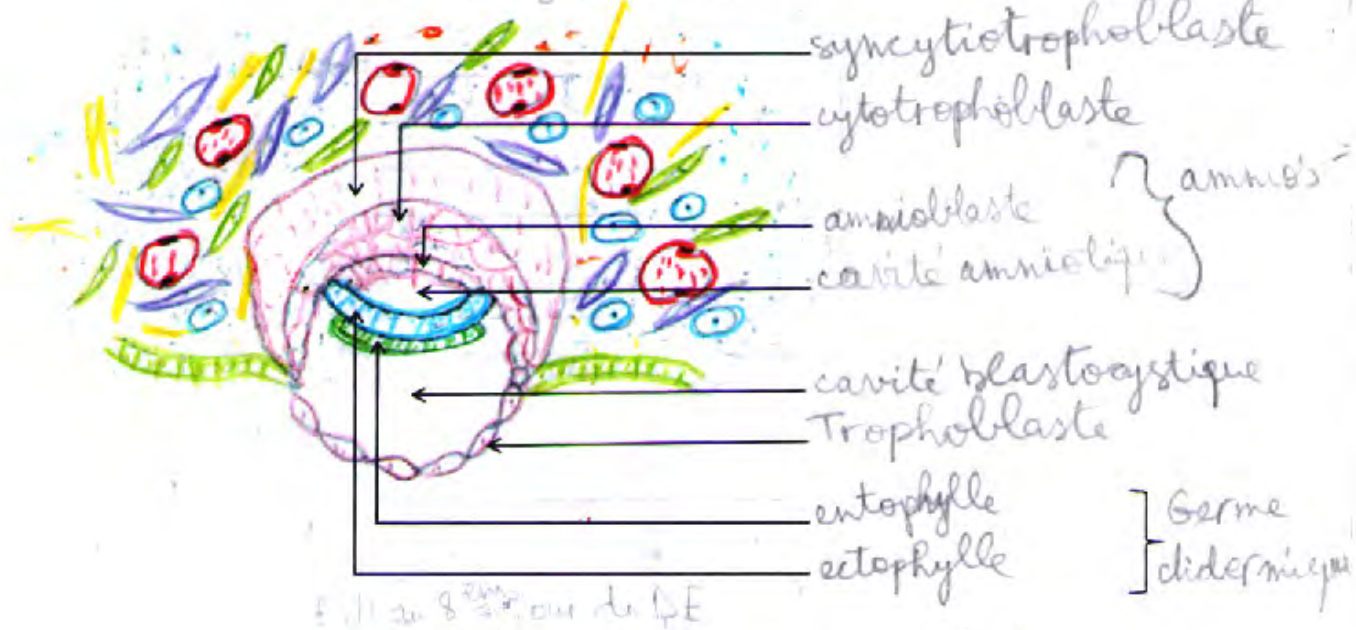 syncytiotrophoblaste
cytotrophoblaste
amnioblaste
cavité amniotiqu
amnios
cavité blastocystique
Trophoblaste
entophylle
ectophylle
Germe
didermique
8